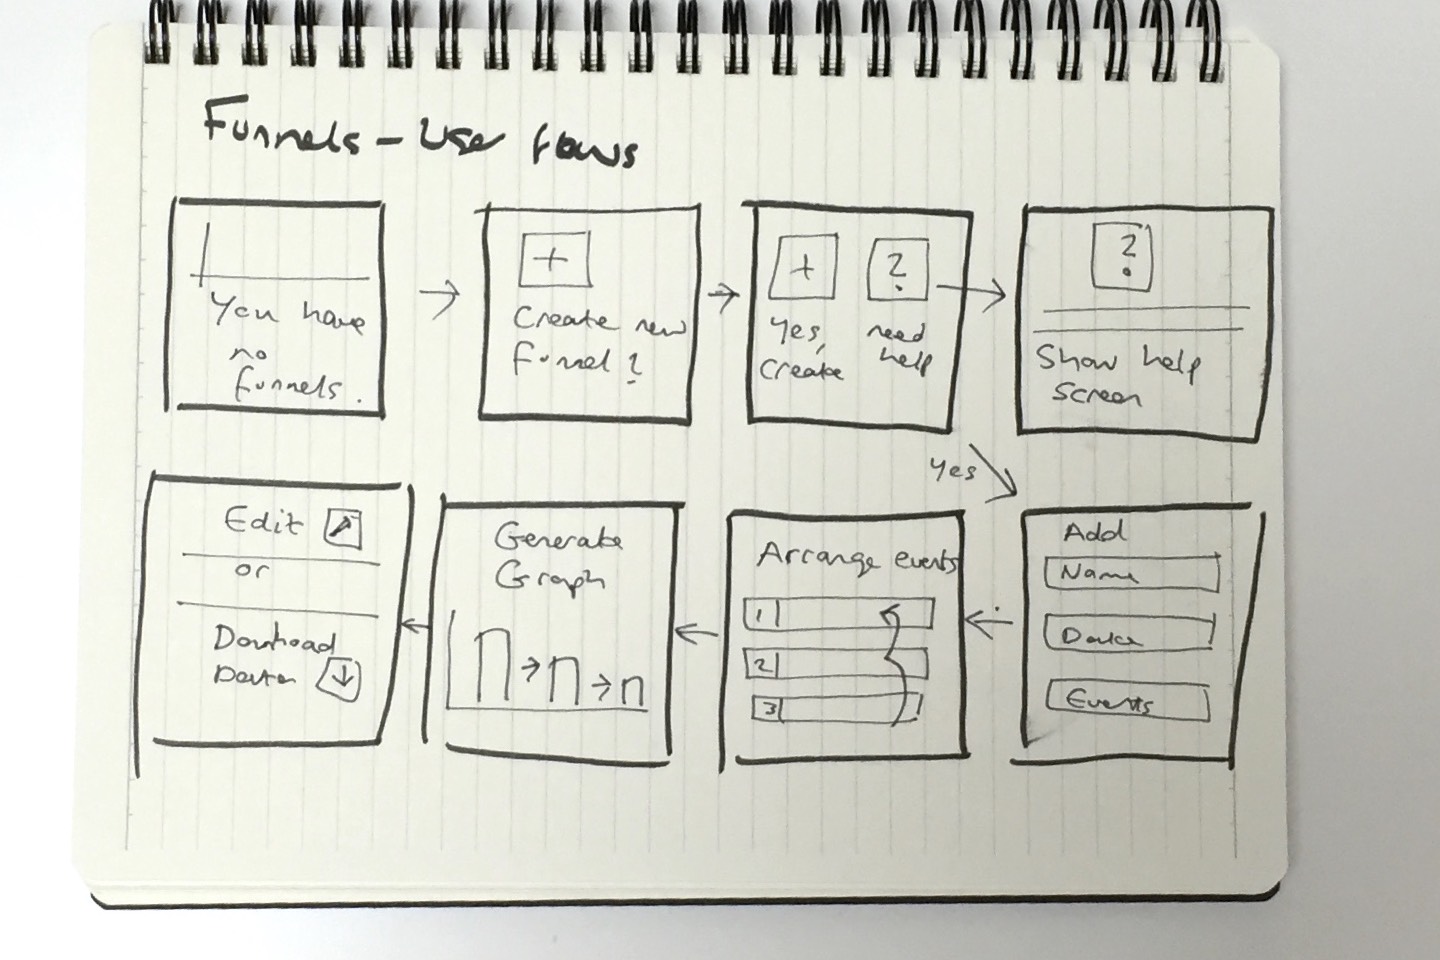 Funnels - Use flows
You have
no
funnels.
+
Create new
funnel?
+
Yes,
create
?
need
help
?
Show help
screen
Yes
Add
Name
Device
Events
Arrange events
1
2
3
Generate
Graph
Edit
or
Download
Data